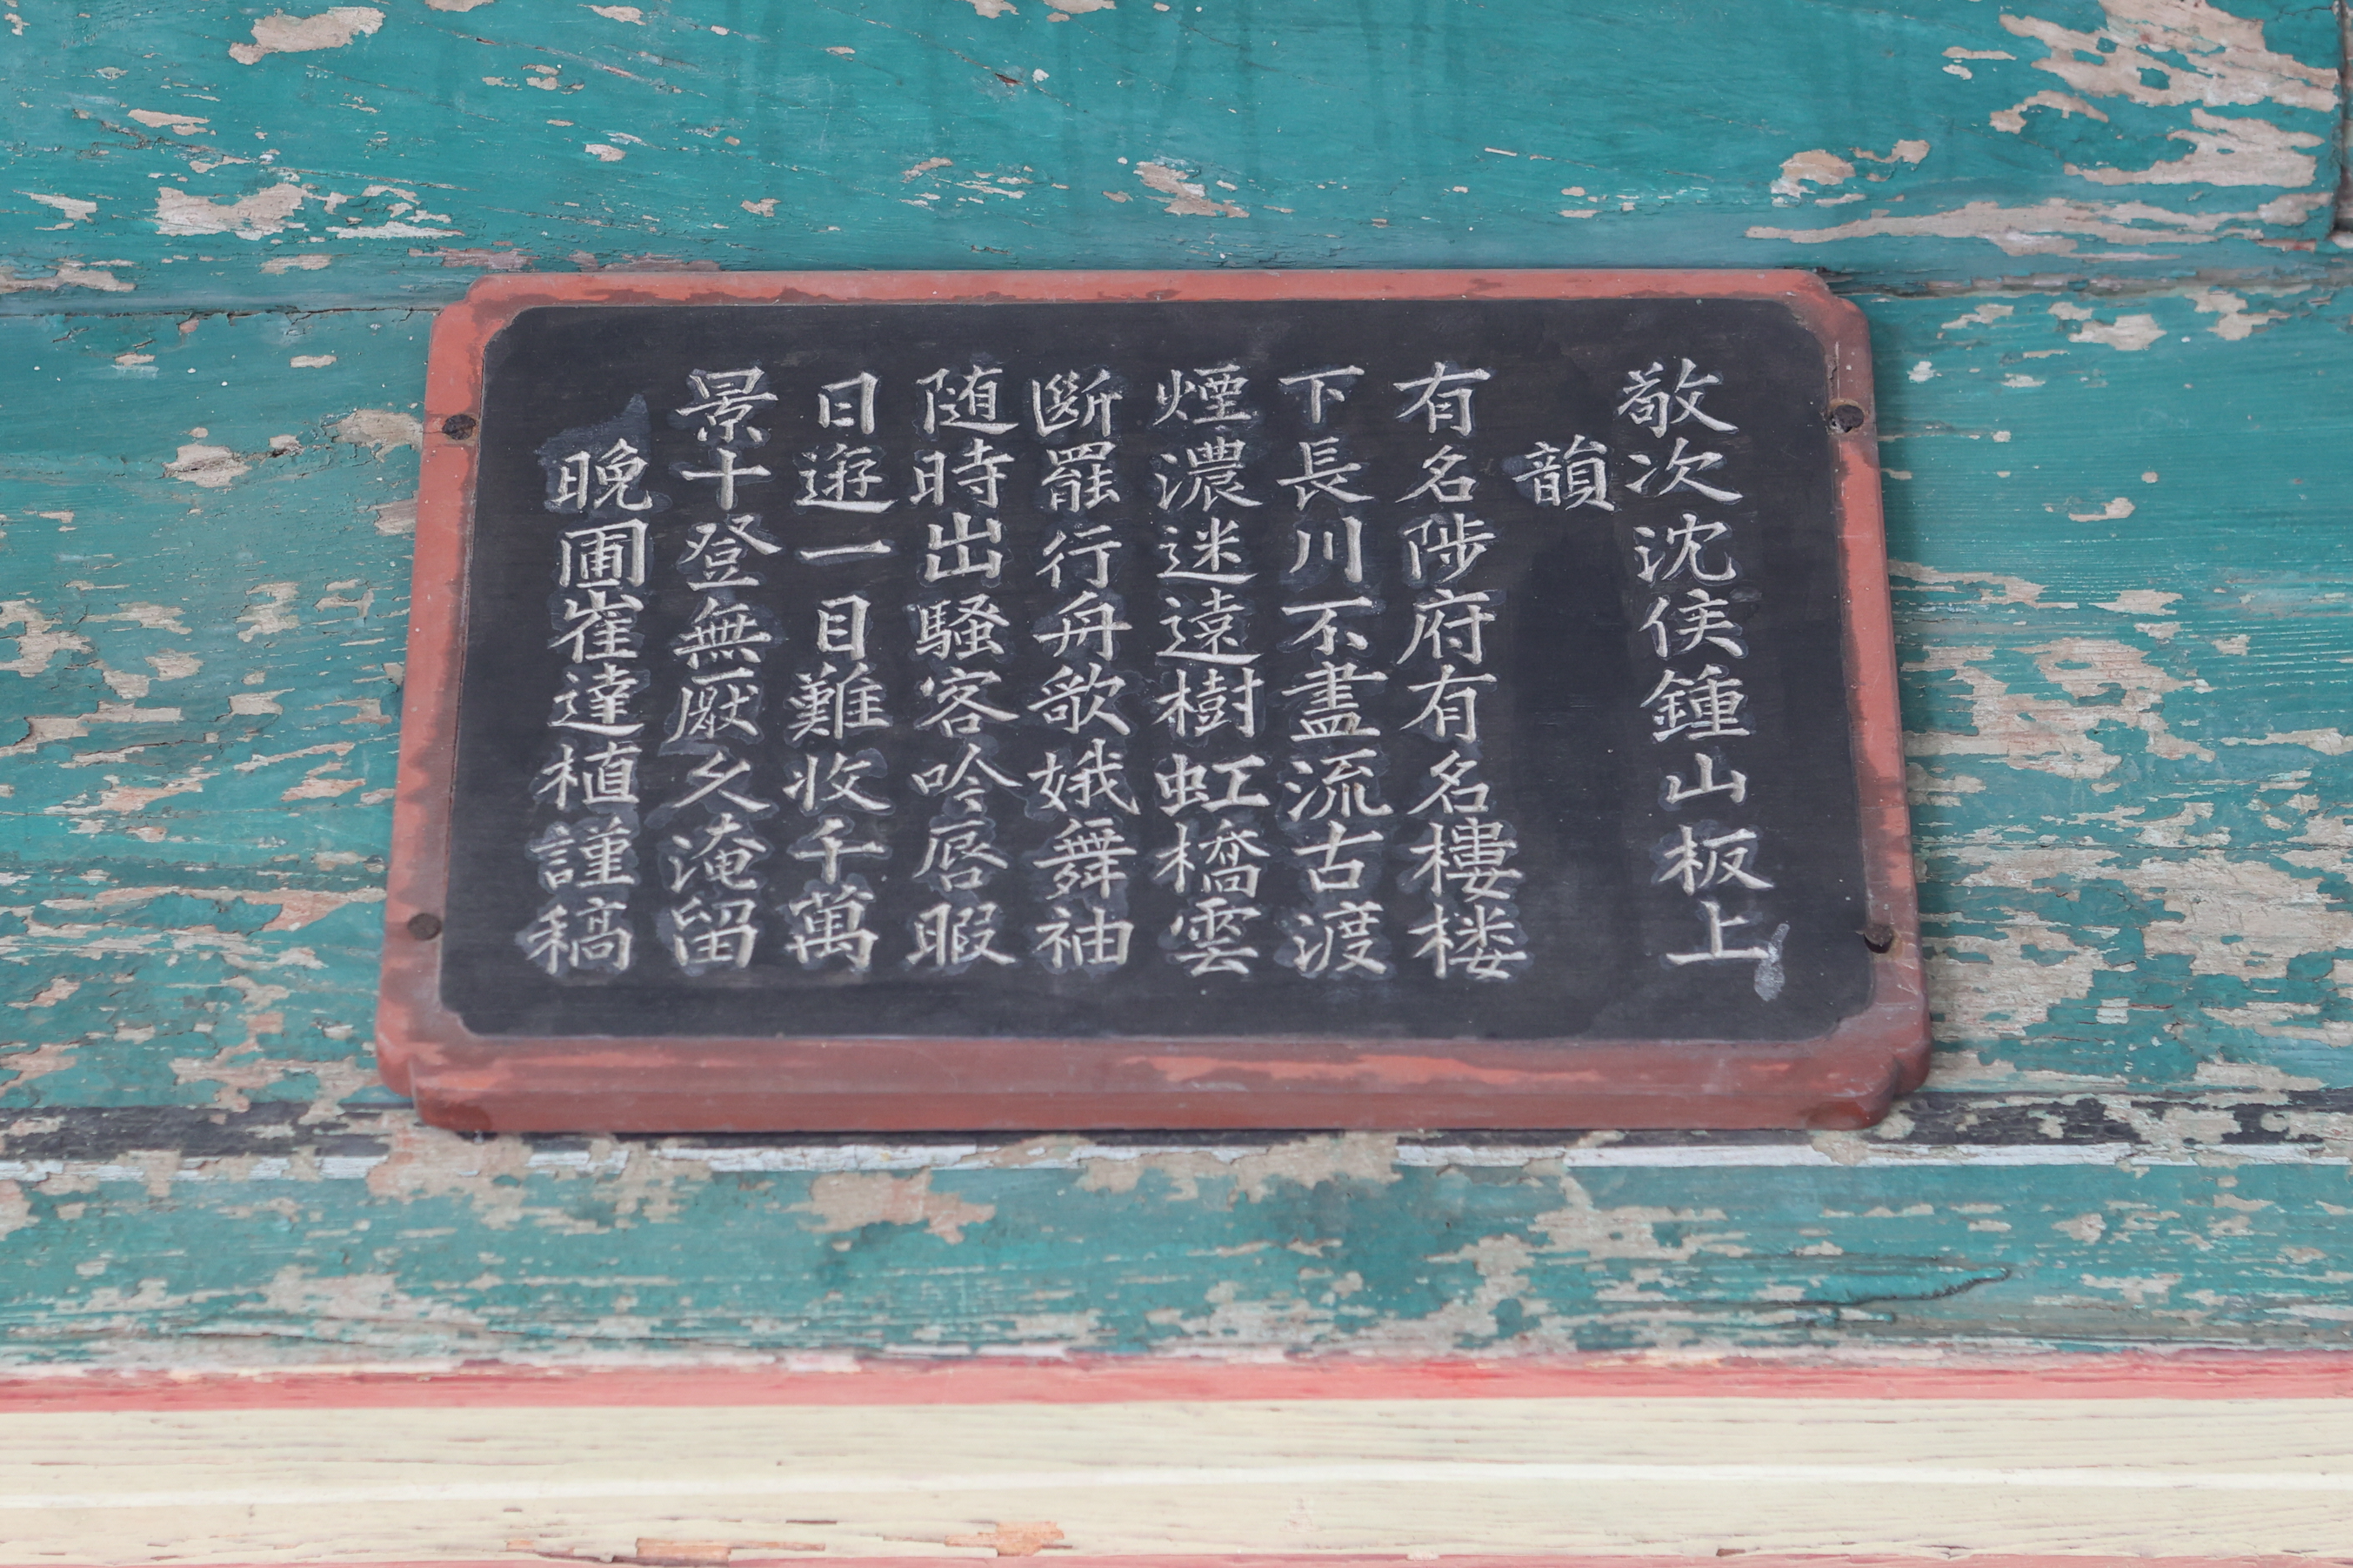 敬次沈侯鍾山板上
韻
有名陟府有名樓楼
下長川不盡流古渡
煙濃迷遠樹虹橋雲
斷罷行舟歌娥舞袖
随時出騷客吟唇暇
日遊一目難收千萬
景十登無厭久淹留
晩圃崔達植謹稿